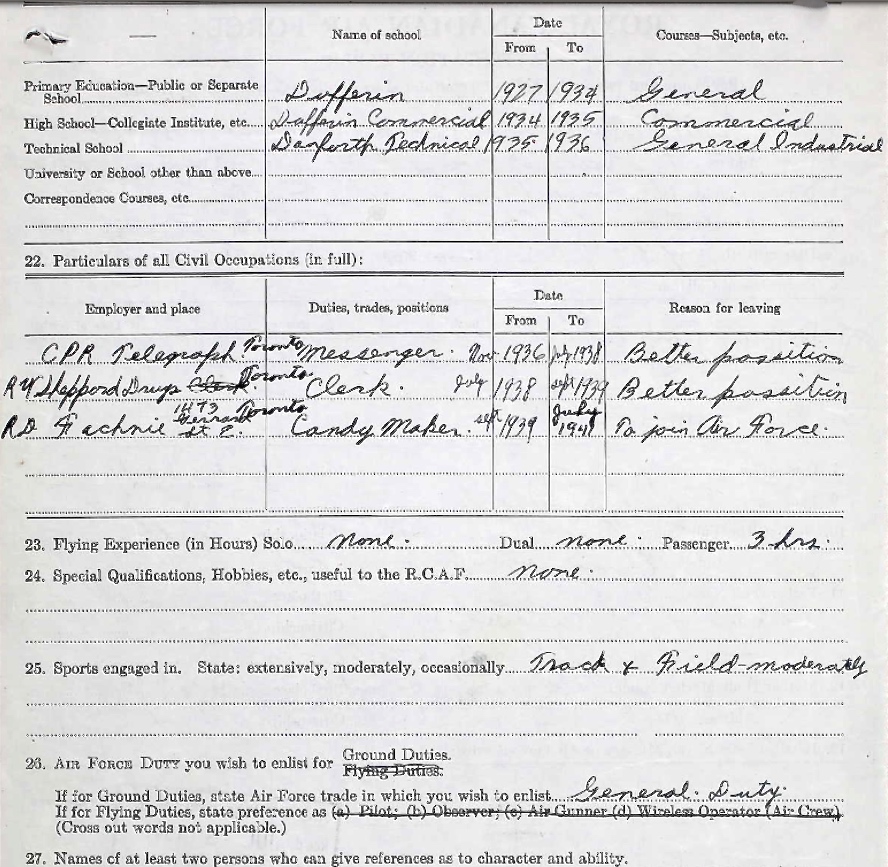 Name of school Date Courses—Subjects, etc.
From To
Primary Education—Public or Separate
School Dufferin 1927 1934 General
High School—Collegiate Institute, etc. Dufferin Commercial 1934 1935 Commercial
Technical School Danforth Technical 1935 1936 General Industrial
University or School other than above
Correspondence Courses, etc.
22. Particulars of all Civil Occupations (in full):
Employer and place Duties, trades, positions Date Reason for leaving
From To
CPR Telegraph Toronto Messenger. Nov 1936 July 1938 Better possition
RW Sheppord Drugs Clerk Toronto Clerk. July 1938 sept 1939 Better possition
RD Fachnie 1473 Gerrard St E. Toronto Candy Maker. sept 1939 July 1941 To join Air Force.
23. Flying Experience (in Hours) Solo none. Dual none. Passenger 3 hrs.
24. Special Qualifications, Hobbies, etc., useful to the R.C.A.F. none.
25. Sports engaged in. State: extensively, moderately, occasionally Track & Field-moderately
26. AIR FORCE DUTY you wish to enlist for Ground Duties.
Flying Duties.
If for Ground Duties, state Air Force trade in which you wish to enlist General Duty.
If for Flying Duties, state preference as (a) Pilot; (b) Observer; (c) Air Gunner (d) Wireless Operator (Air Crew)
(Cross out words not applicable.)
27. Names of at least two persons who can give references as to character and ability.